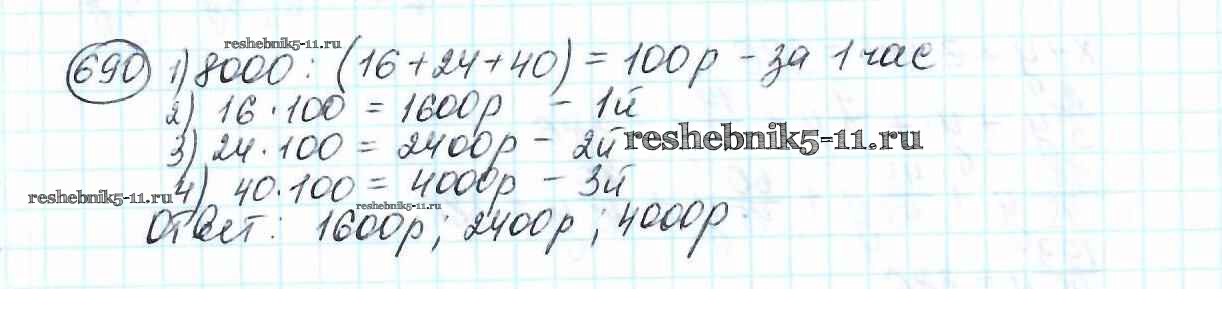 reshebnik5-11.ru
690 1) 8000 : (16 + 24 + 40) = 100р - за 1 час
2) 16 · 100 = 1600р - 1й
3) 24 · 100 = 2400р - 2й reshebnik5-11.ru
reshebnik5-11.ru 4) 40 · 100 = 4000р - 3й
reshebnik5-11.ru
Ответ: 1600р; 2400р; 4000р.